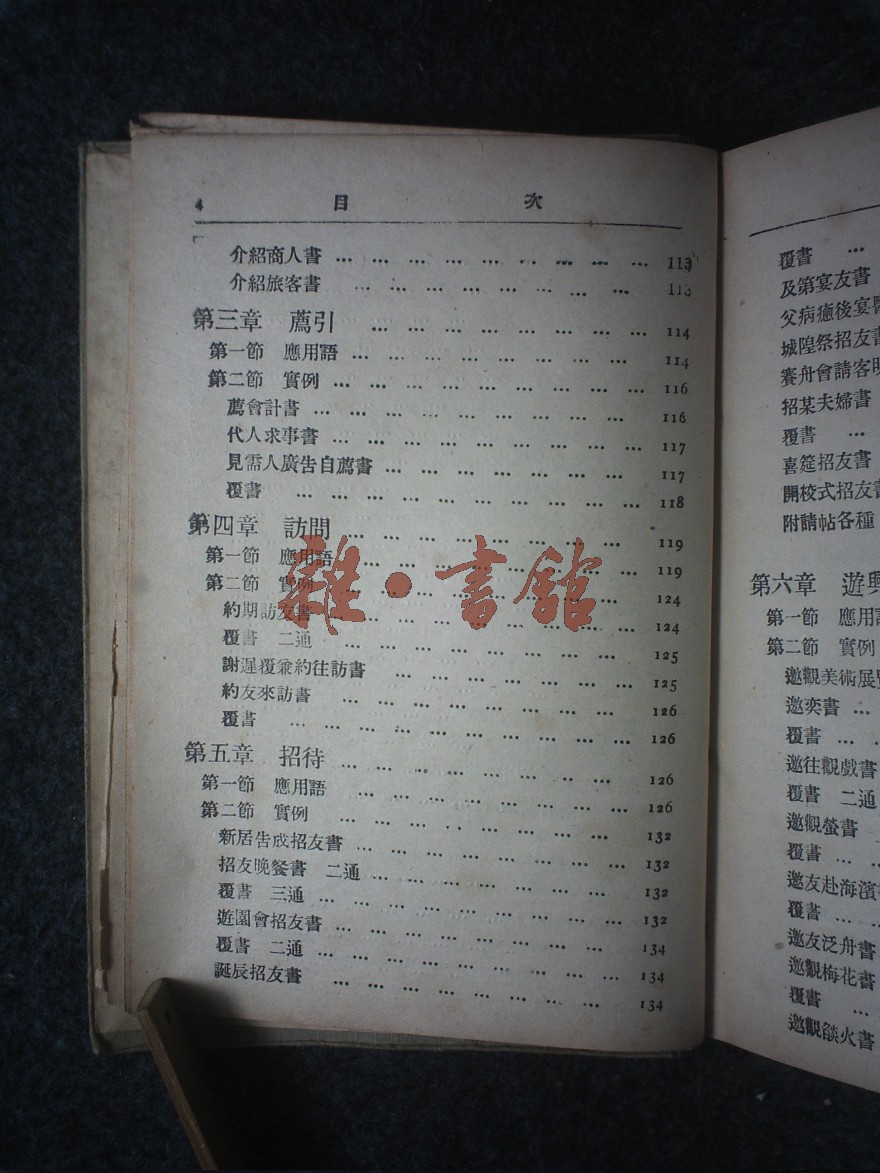 4 目 次
介紹商人書 … … … … … … … … … 113
介紹旅客書 … … … … … … … … … 113
第三章 薦引 … … … … … … … … 114
第一節 應用語 … … … … … … … … 114
第二節 實例 … … … … … … … … … 116
薦會計書 … … … … … … … … … 116
代人求事書 … … … … … … … … … 117
見需人廣告自薦書 … … … … … … … 117
覆書 … … … … … … … … … 118
第四章 訪問 … … … … … … … … … 119
第一節 應用語 … … … … … … … … 119
第二節 實例 … … … … … … … … … 124
約期訪友書 … … … … … … … … … 124
覆書 二通 … … … … … … … … … 125
謝遲覆兼約往訪書 … … … … … … … 125
約友來訪書 … … … … … … … … 126
覆書 … … … … … … … … … 126
第五章 招待 … … … … … … … … … 126
第一節 應用語 … … … … … … … … 126
第二節 實例 … … … … … … … … 132
新居告成招友書 … … … … … … … 132
招友晚餐書 二通 … … … … … … … 132
覆書 三通 … … … … … … … … … 132
遊園會招友書 … … … … … … … … 134
覆書 二通 … … … … … … … … … 134
誕辰招友書 … … … … … … … … 134
雜·書館
覆書 …
及第宴友書
父病癒後宴醫
城隍祭招友書
賽舟會請客
招某夫婦書
覆書 …
喜筵招友書
開校式招友書
附請帖各種
第六章 遊興
第一節 應用語
第二節 實例
邀觀美術展覽
邀奕書 …
覆書 … …
邀往觀戲書
覆書 二通
邀觀螢書
覆書 … …
邀友赴海濱
覆書 …
邀友泛舟書
邀觀梅花書
覆書 …
邀觀燄火書